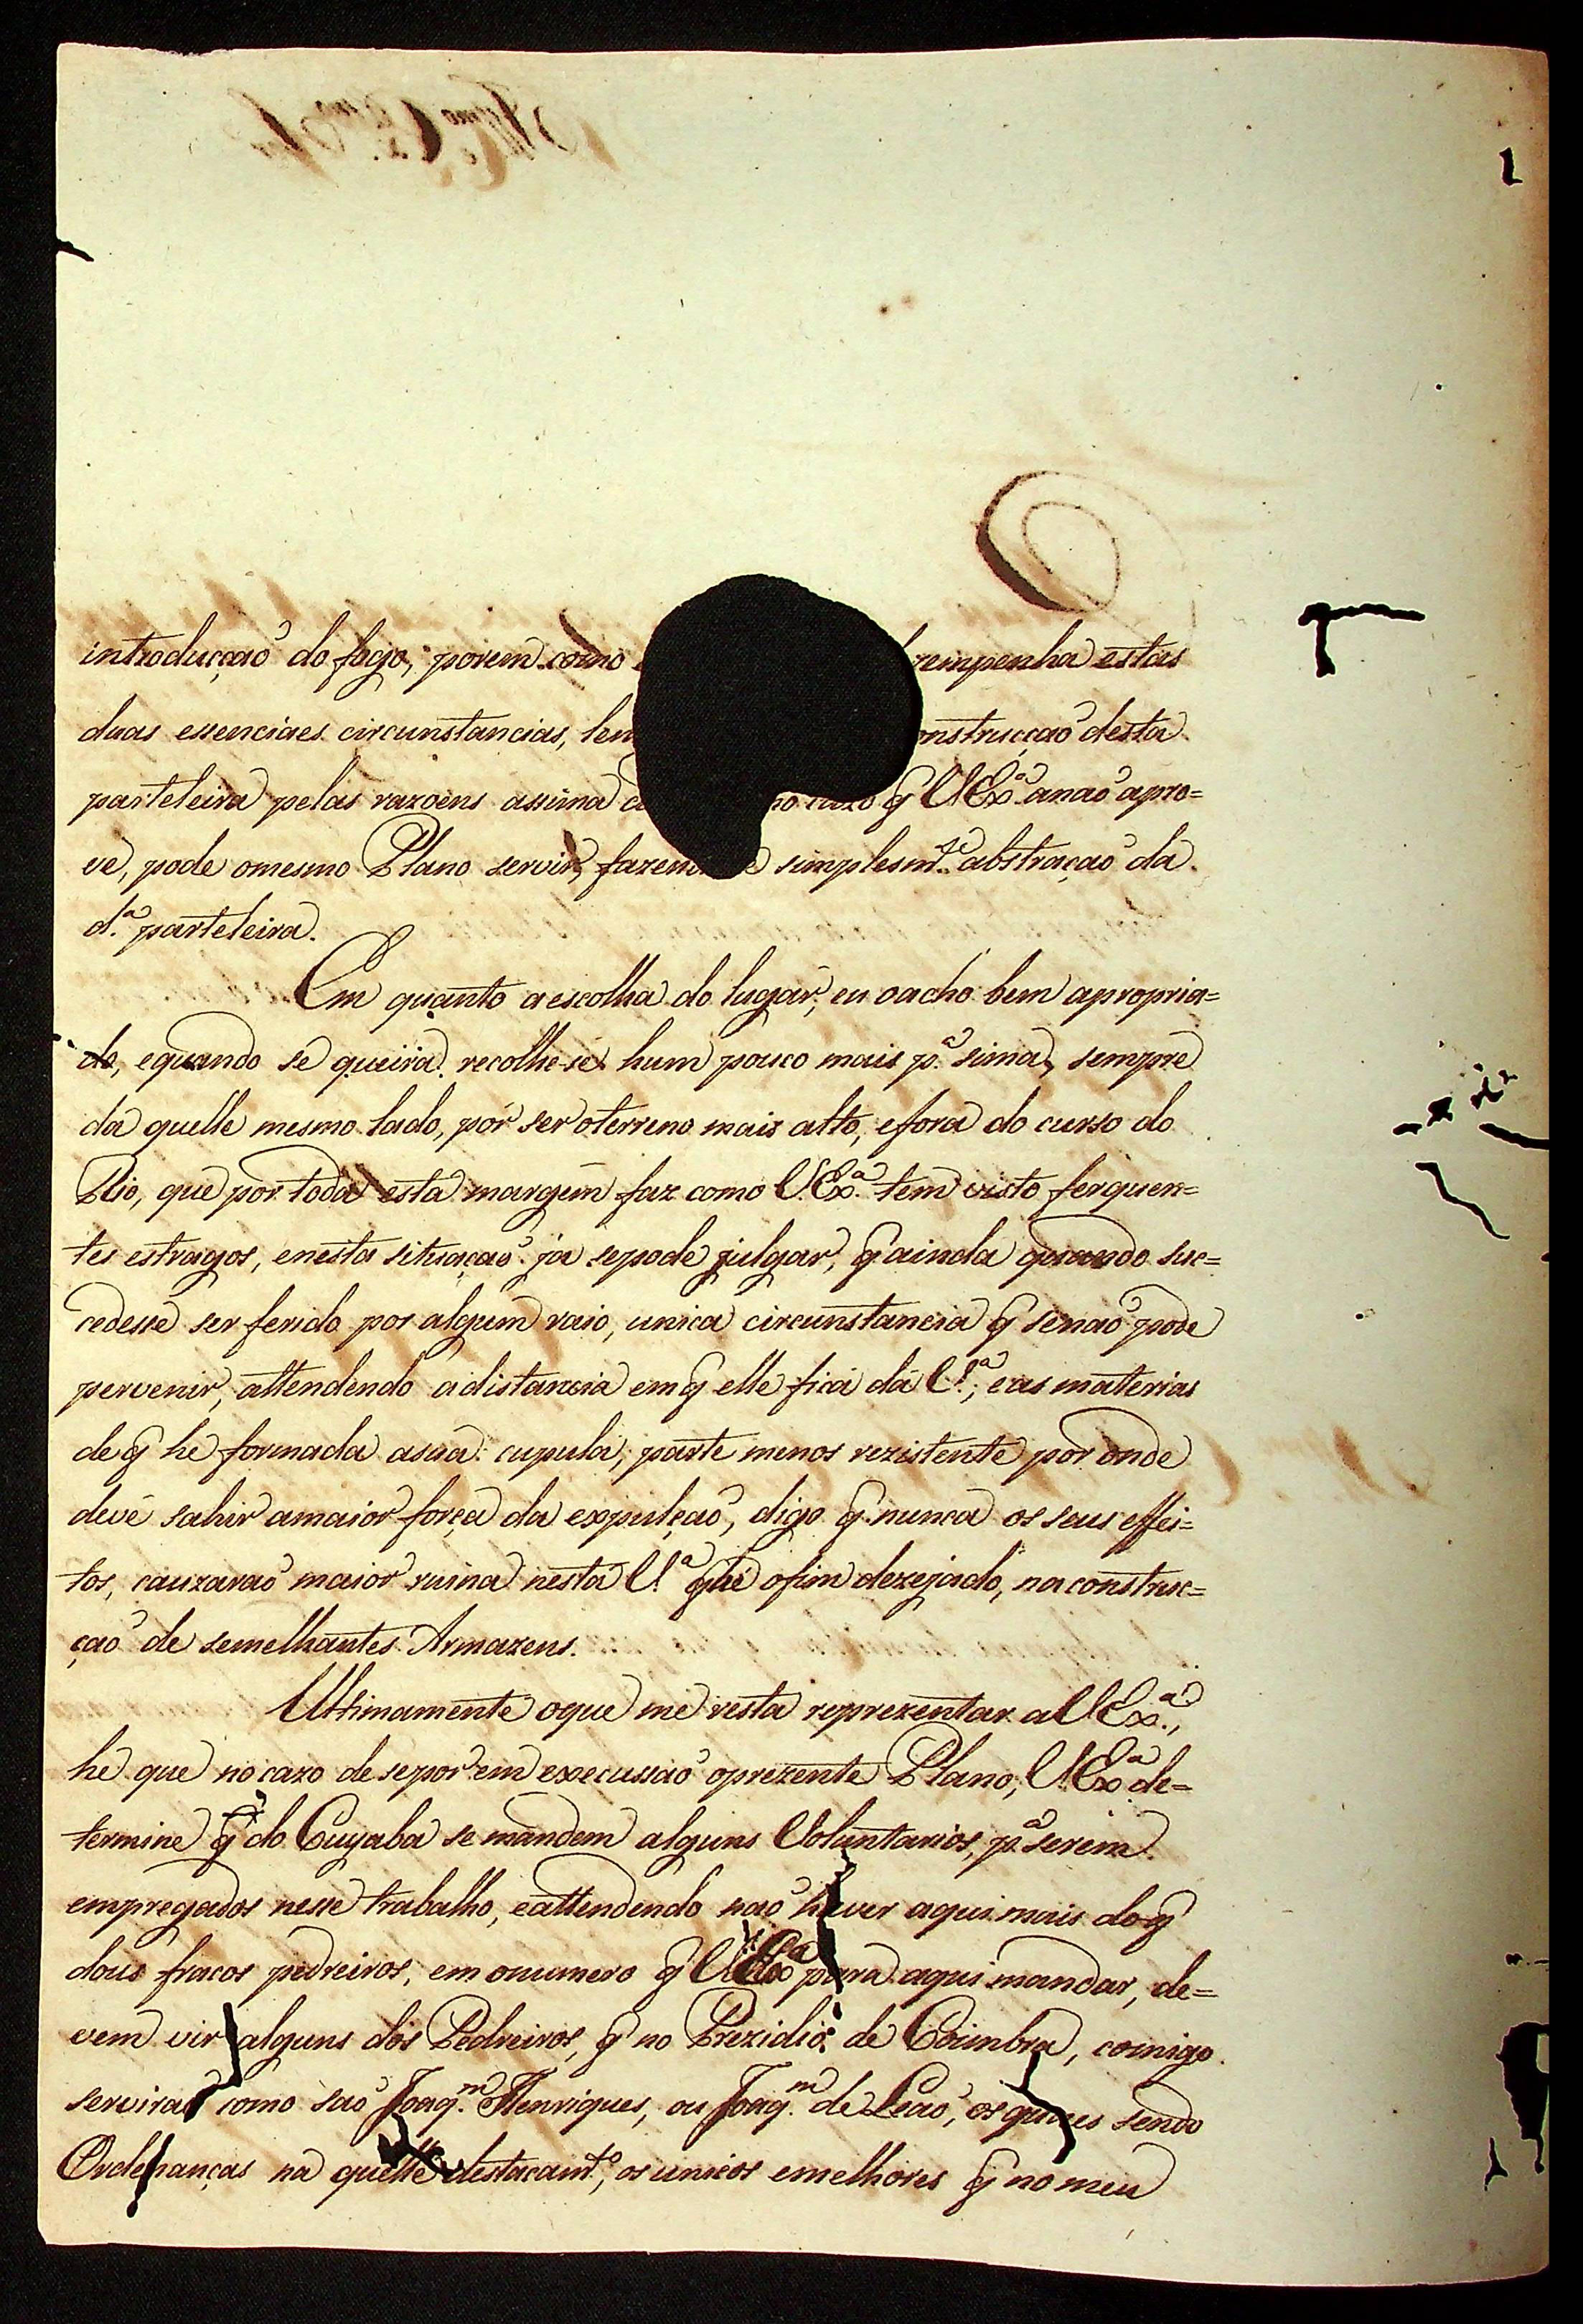 introducçaõ do fogo, porem como zempenha estas
duas essenciaes circunstancias, onstrucçaõ desta
parteleira pelas razoens assima no cazo q̃ V.Exª. anaõ apro=
ve, pode omesmo Plano servir, simplesm.te abstraçaõ da
d.ª parteleira.
Em quanto aescolha do lugar, eu oacho bem apropria=
do, equando se queira recolhe-se hum pouco mais p.ª sima, sempre
da quelle mesmo lado, por ser oterreno mais alto, efora do curso do
Rio, que por toda esta margem faz como V.Exª. tem visto ferquen=
tes estragos, enesta situaçaõ ja sepode julgar, q̃ ainda quando suc=
cedesse ser ferido por algum raio, unica circunstancia q̃ senaõ pode
pervenir, attendendo adistancia em q̃ elle fica da V.ª, eas materias
de q̃ he formada asua cupula, parte menos rezistente por onde
deve sahir amaior força da expulçaõ, digo q̃ nunca os seus effei=
tos, cauzaraõ maior ruina nesta V.ª q̃ he ofim dezejado, na construc=
çaõ de semelhantes Armazens.
Ultimamente oque me resta reprezentar a V.Exª.,
he que no cazo de sepor em execussaõ oprezente Plano, V.Exª de=
termine q̃ do Cuyaba se mandem alguns Voluntarios, p.ª serem
empregados nesse trabalho, eattendendo naõ haver aqui mais do q̃
dous fracos pedreiros, em onumero q̃ V.Exª para aqui mandar, de=
vem vir alguns dos Pedreiros, q̃ no Prezidio de Coimbra, comigo
serviraõ como saõ Joaq.m Henriques, ou Joaq.m de Leaõ, os quaes sendo
Ordenanças na quelle destacam.to, os unicos emelhores q̃ no meu